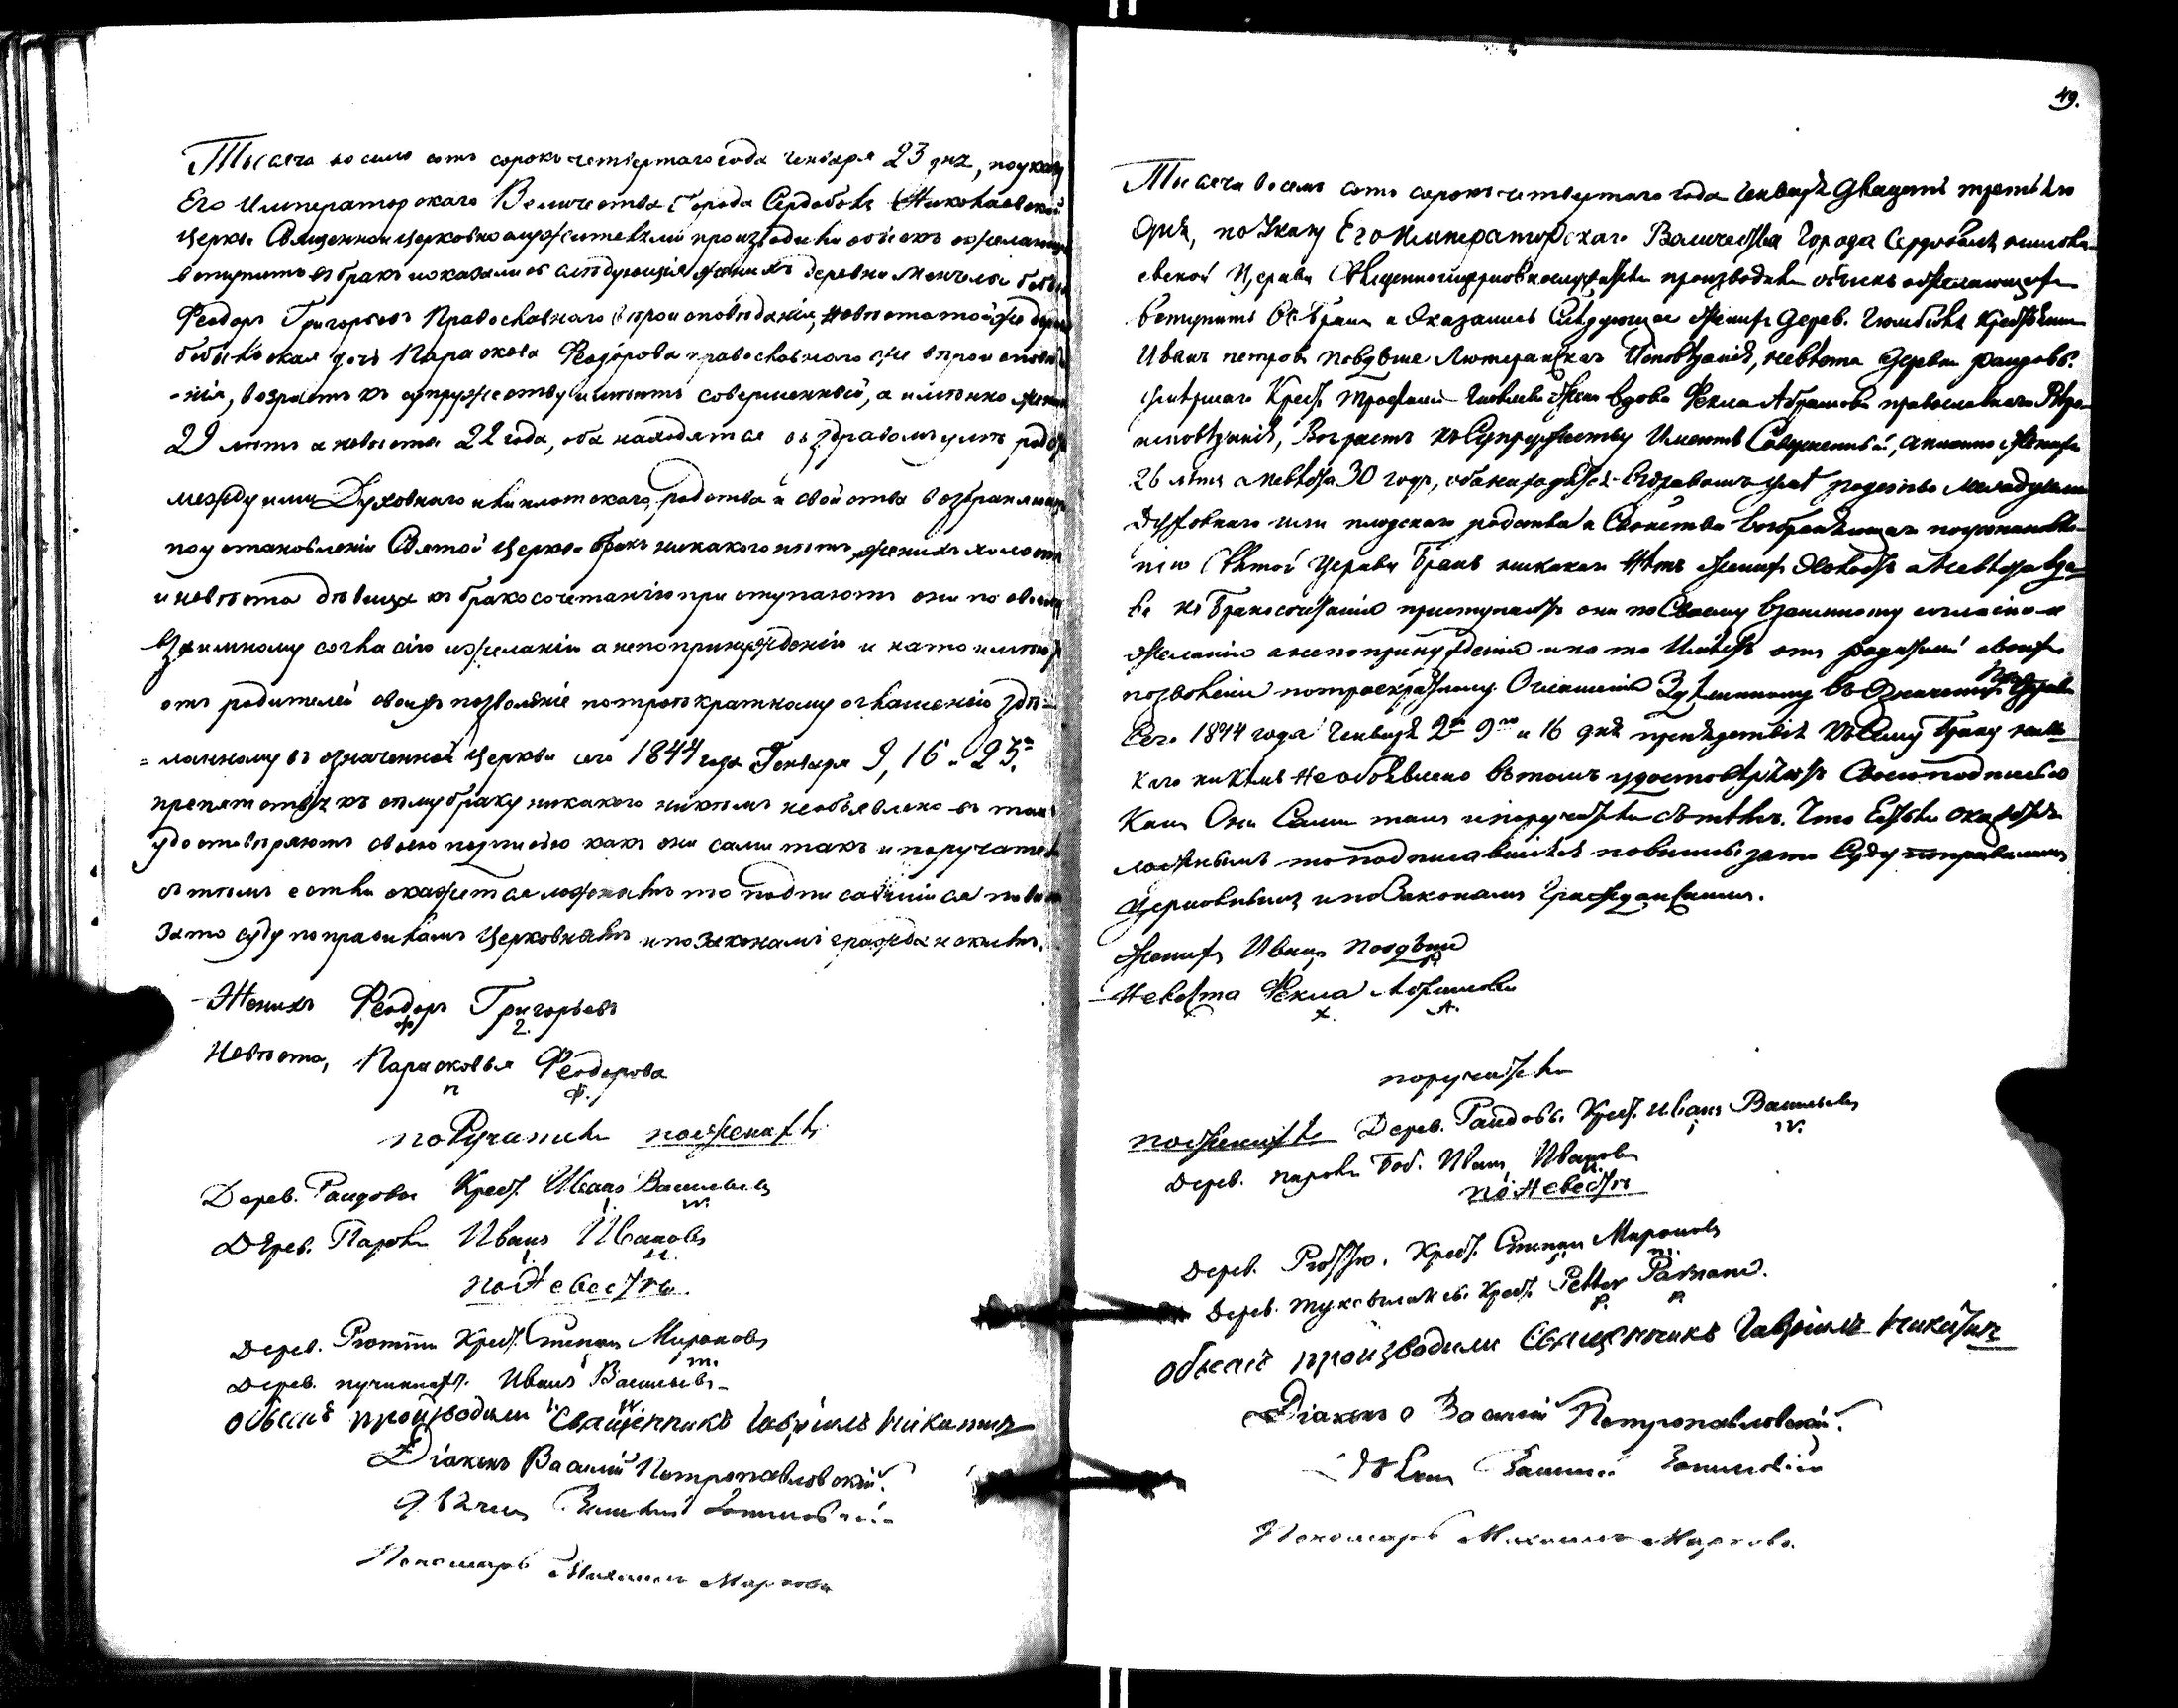 Тысяча восемь сотъ сорокъ четвертаго года Генваря 23 дня, по указу
Его Императорскаго Величества Города Сердоболя Николаевской
Церкви Священноцерковнослужители производили обыскъ о желающихъ
вступить въ бракъ и оказались слѣдующія женихъ деревни
Феодоръ Григорьевъ Православнаго вѣроисповѣданія, невѣста той же дерев
дочь Параскова Феодорова православнаго же вѣроисповѣда
-нія, возрастъ къ супружеству имѣютъ совершенный, а именно женихъ
29 лѣтъ а невѣста 22 года, оба находятся въ здравомъ умѣ, родст
между ими Духовнаго и плотскаго родства и свойства возбраняющ
по установленію Святой Церкви бракъ никакого нѣтъ, женихъ холостъ
и невѣста дѣвица къ бракосочетанію приступаютъ они по своему
взаимному согласію и желанію а не по принужденію и на то имѣютъ
отъ родителей своихъ позволеніе по троекратному оглашенію здѣ=
=ланному въ означенной Церкви сего 1844 года Генваря 9, 16 и 23.
препятствія къ сему браку никакого никѣмъ необъявлено въ томъ
удостовѣряютъ своею подписью какъ они сами такъ и поручатели
съ тѣмъ естьли окажется ложнымъ то подписавшіися повин
за то суду по правиламъ Церковнымъ и по Законамъ гражданскимъ.
Женихъ Феодоръ Григорьевъ
Ф Г.
Невѣста, Парасковья Феодорова
п Ф.
поручатели по женихѣ
Дерев. Раидовы Крест. Иванъ Васильевъ
Дерев. Парола Иванъ Ивановъ
по Невестѣ
Дерев. Крест. Степанъ Мироновъ
Дерев. Иванъ Васильевъ
обыскъ производили Священникъ Гавріилъ Никитинъ
Діаконъ Василій Петропавловскій.
Василій
Пономарь Михаилъ Марковъ
49.
Тысяча восемь сотъ сорокъ четвертаго года Генваря двадцать третьяго
дня, по Указу Его Императорскаго Величества Города Сердоболя никола
евской Церкви Священноцерковнослужители производили обыскъ о желающихъ
вступить въ бракъ и оказались Слѣдующіе женихъ дерев. Крестьянин
Иванъ петровъ Лютеранскаго Исповѣданія, невѣста деревни раидовы
умершаго Крест. жена вдова Фекла Абрамова православнаго Вѣро
исповѣданія, Возрастъ къ Супружеству Имеютъ Совершенный, а именно Женихъ
26 лѣтъ а невѣста 30 годъ, оба находятся въ здравомъ умѣ родство между ими
духовнаго или плодскаго родства и Свойства возбраняющаго по установле
нію Святой Церкви бракъ никакаго нѣтъ женихъ холостъ а невѣста вдо
ва къ бракосочетанію приступаютъ они по Своему взаимному согласію и
желанію а не по принужденію и на то Имѣютъ отъ родителей своихъ
позволеніе по троекратному Оглашенію Здѣланному въ Означенной Церкви
Сего 1844 года Генваря 2го 9го и 16 дня препядствія къ Сему браку ника
каго никѣмъ необъявлено въ томъ удостовѣряютъ Своею подписью
Какъ Они Сами такъ и поручатели съ тѣмъ. Что Естьли окажется
ложнымъ то подписавшіеся повинны за то Суду по правиламъ
церковнымъ и по Законамъ Гражданскимъ.
Женихъ Иванъ
Невеста Фекла Абрамова
х А.
поручатели
по женихѣ Дерев. Раидовы Крест. Иванъ Васильевъ
Дерев. парола Боб. Иванъ Ивановъ
по Невестѣ
Дерев. Крест. Степанъ Мироновъ
Дерев. Крест. Petter
обыскъ производили Священникъ Гавріилъ Никитинъ
Діаконъ Василій Петропавловскій.
Василій
Пономарь Михаилъ Марковъ